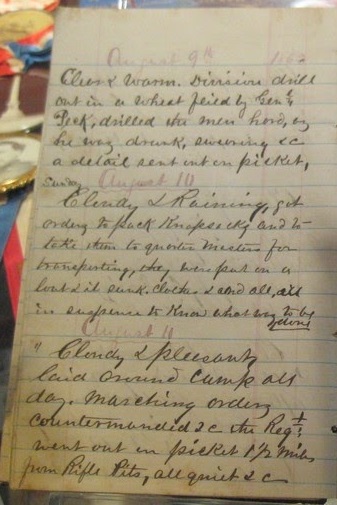 August 9th 1862
Clear & Warm. Division drill
out in a wheat field by Genl
Peck, drilled the men hard, as
he was drunk, swearing &c
a detail sent out on picket,
Sunday August 10
Cloudy & Raining, got
orders to pack Knapsacks and to
take them to quarter Masters for
transporting, they were put on a
boat & it sunk. Clothes & acord all, all
in suspence to Know what was to be
done
August 11
" Cloudy & pleasant
laid around camp all
day. Marching orders
countermanded &c the Regt
went out on picket 1 1/2 miles
from Rifle Pits, all quiet & c